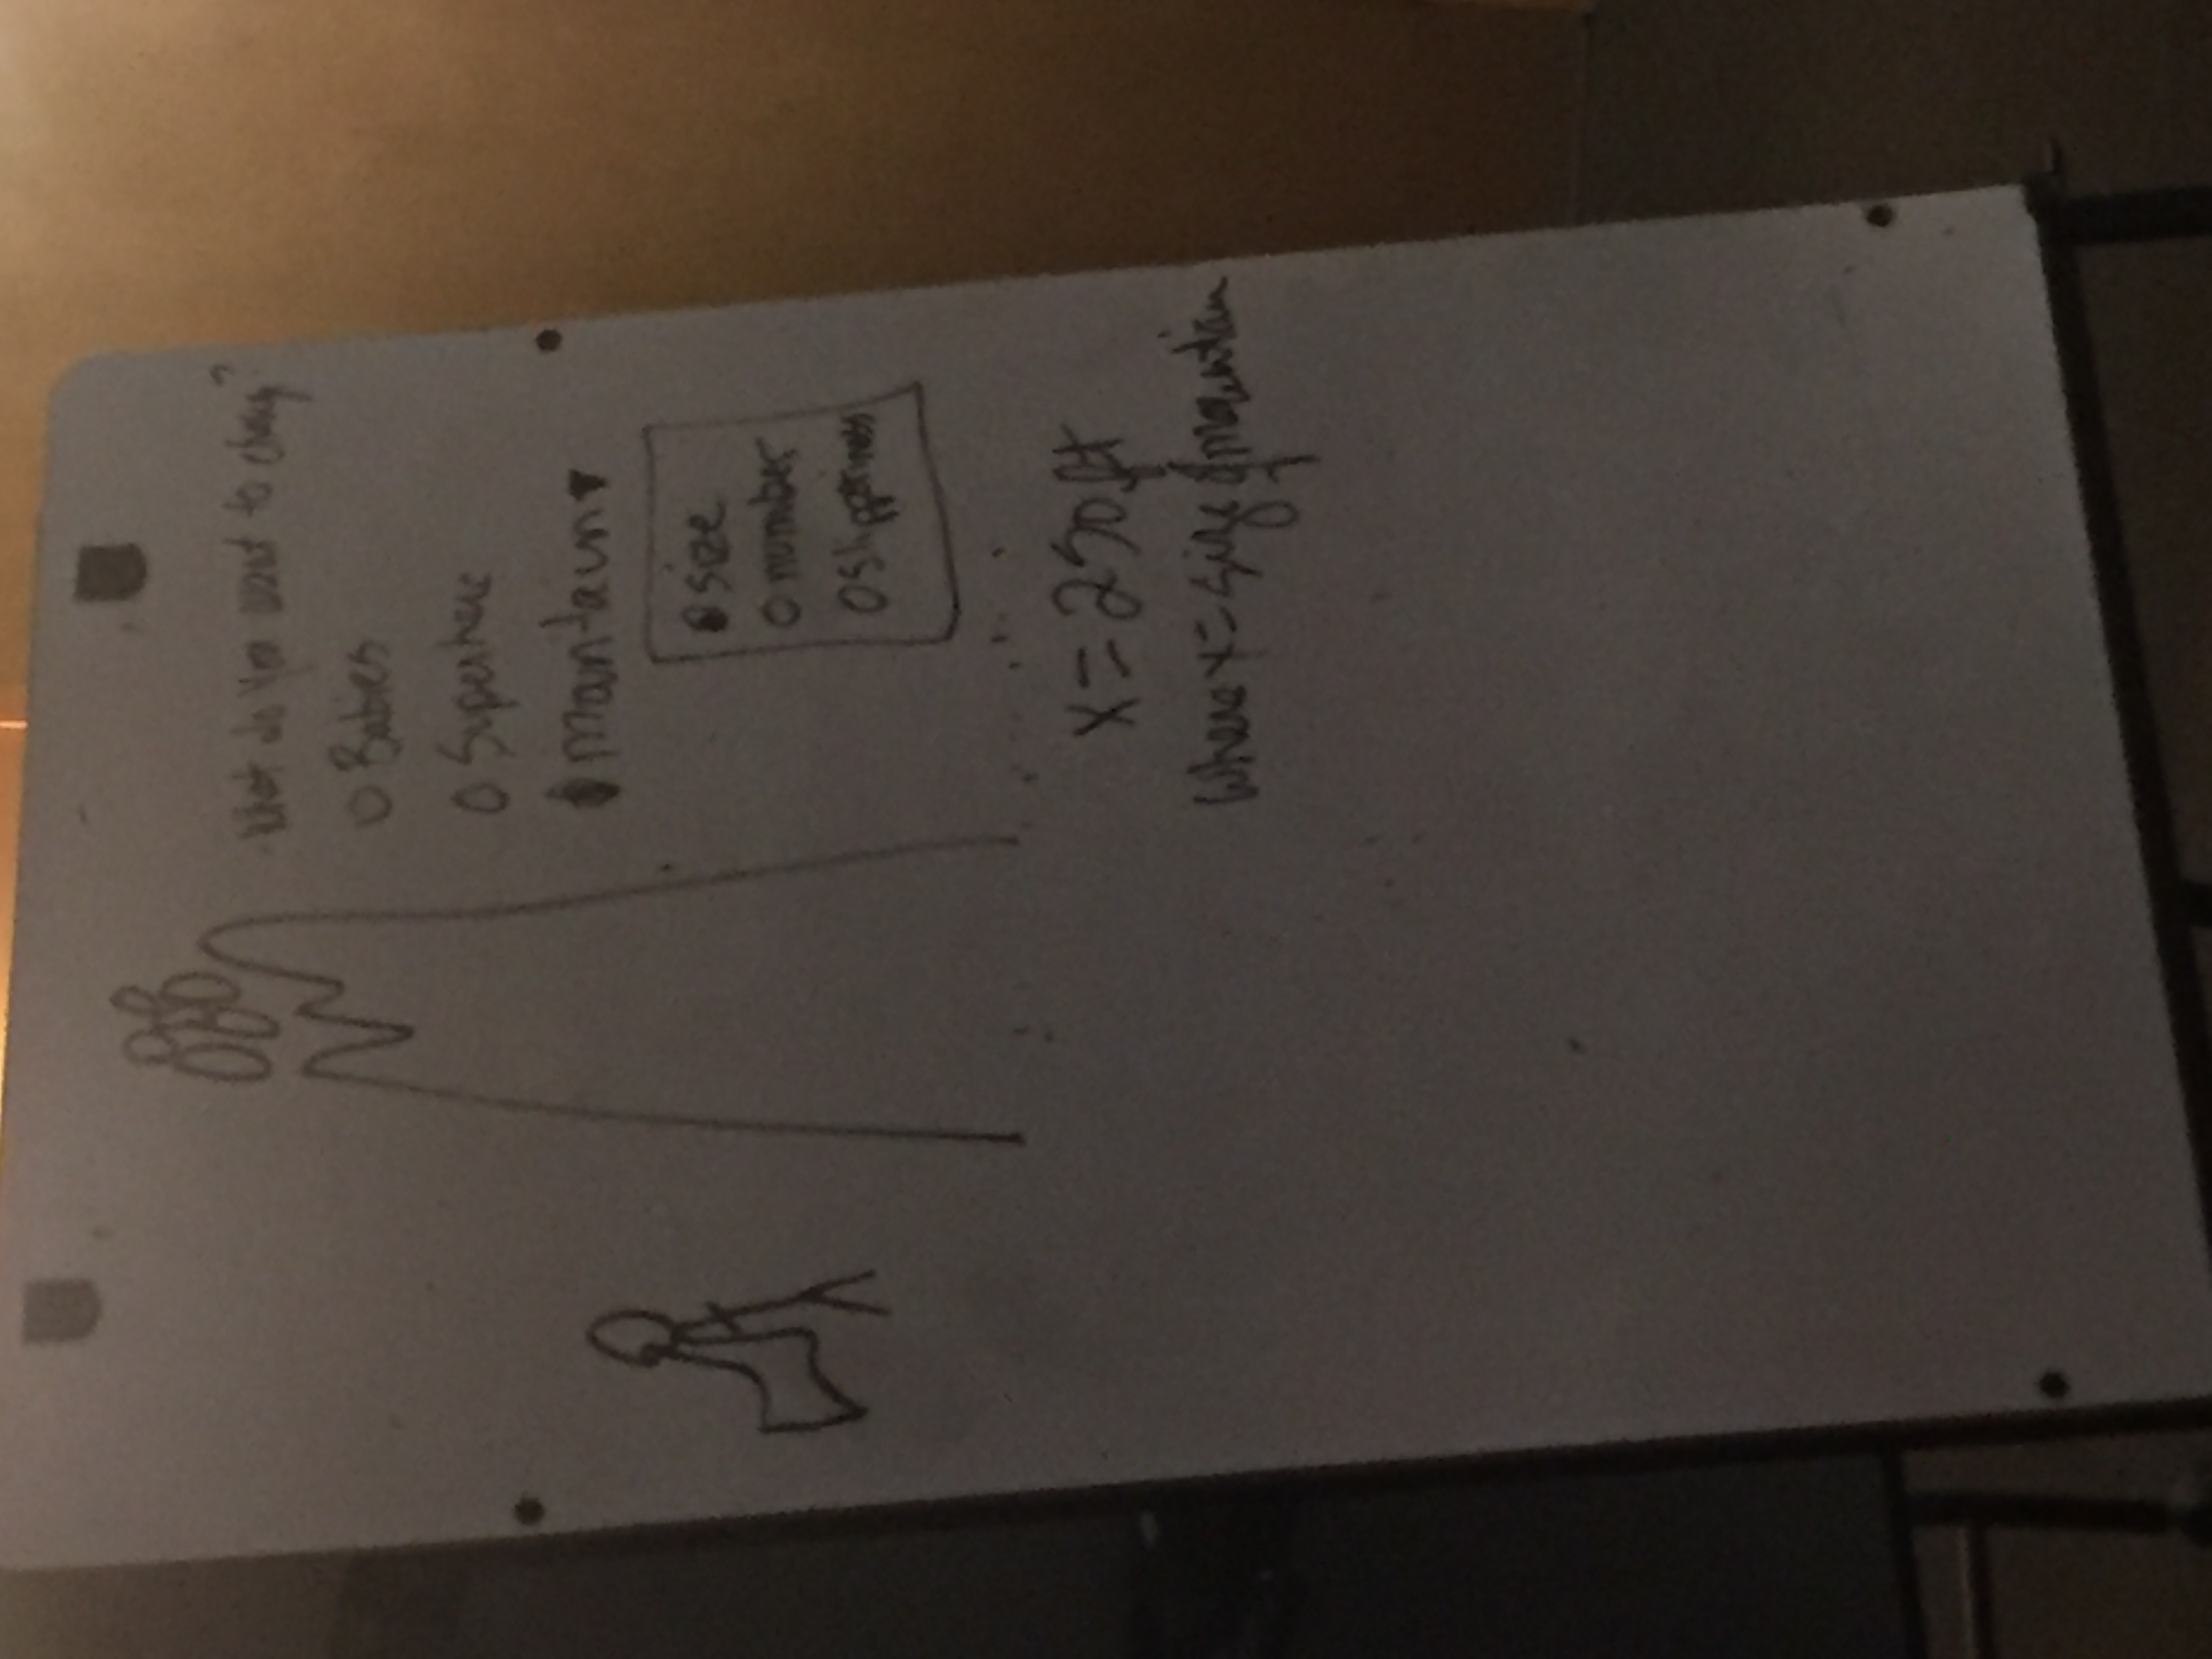 What do you want to change?
Babies
Superhero
Mountain
size
number
slipperiness
x = 250 ft
where x = size of mountain